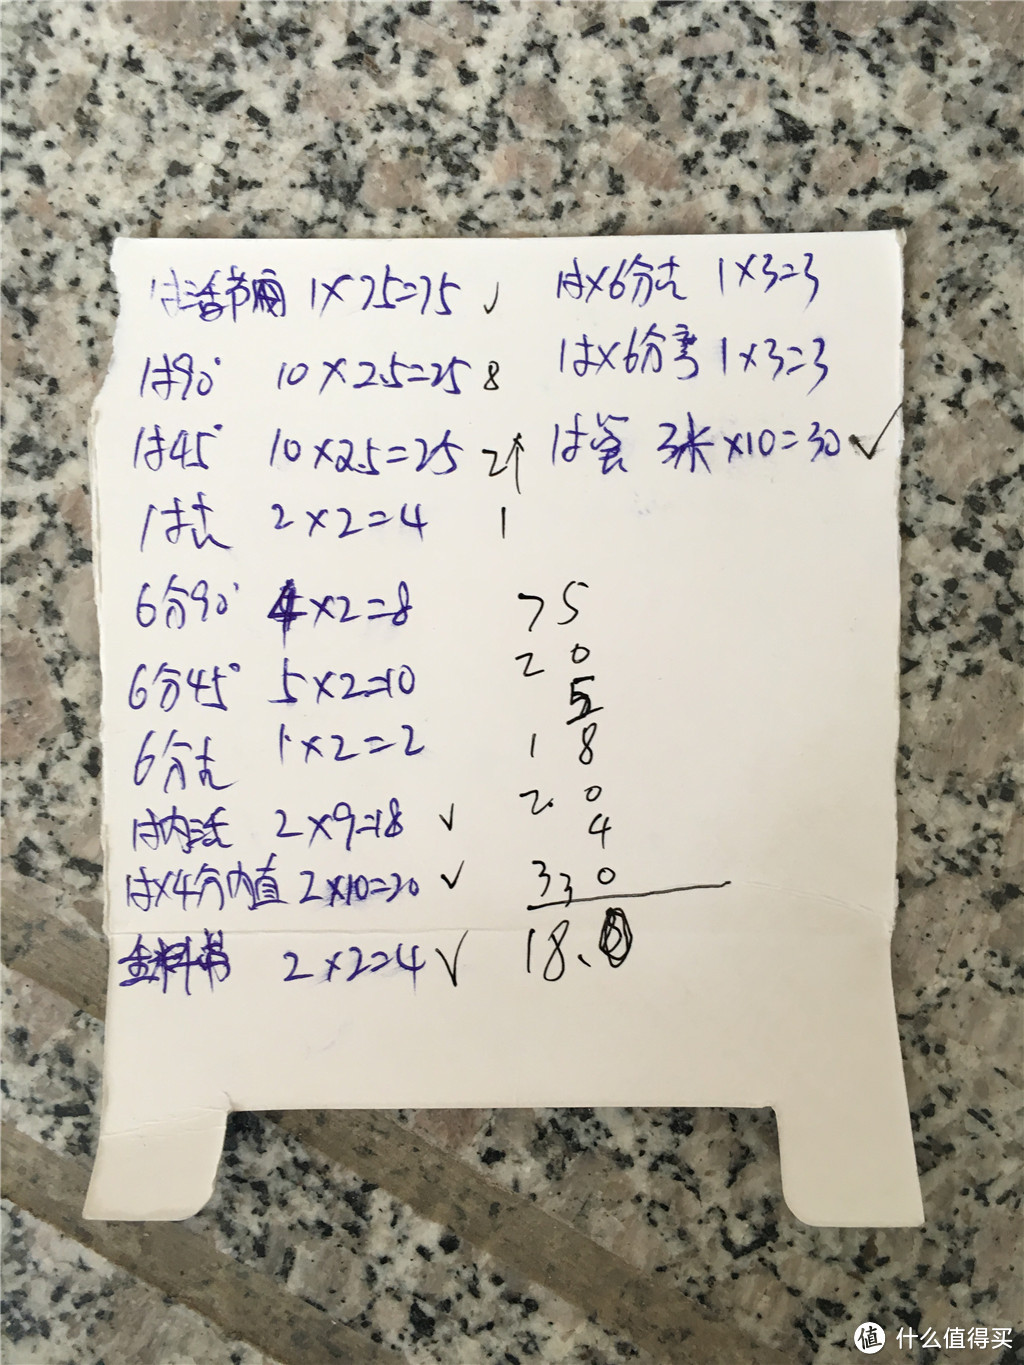 1×75=75 ✓
1寸90° 10×2.5=25 8
1寸45° 10×2.5=25 2个
1寸古 2×2=4 1
6分90° 4×2=8
6分45° 5×2=10
6分古 1×2=2
1寸内活 2×9=18 ✓
1寸×4分内直 2×10=20 ✓
2×2=4 ✓
1寸×6分古 1×3=3
1寸×6分弯 1×3=3
3米×10=30 ✓
75
20
5
18
20
4
330
18.
值 什么值得买